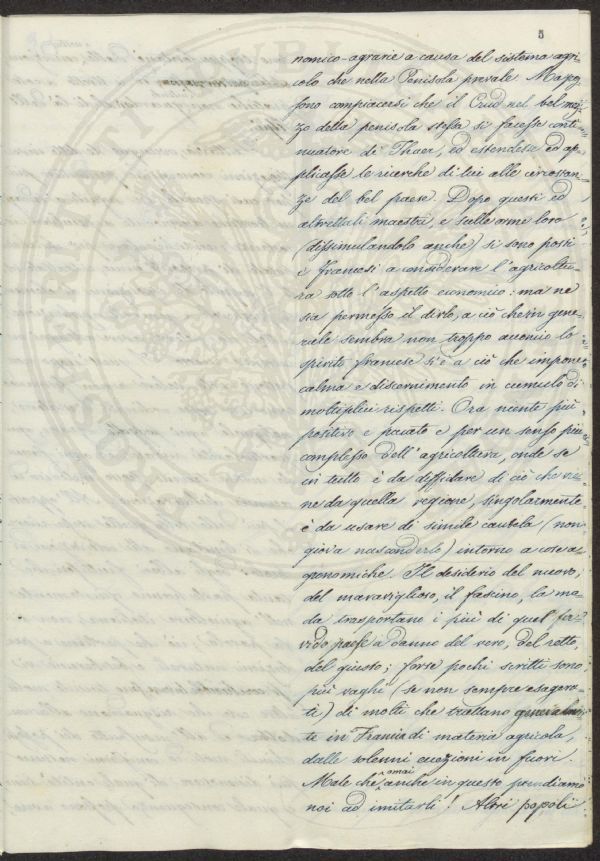 5
nomico-agrarie a causa del sistema agri-
colo che nella Penisola prevale. Ma pos-
sono compiacersi che il Crud nel bel mez-
zo della penisola stessa si facesse conti-
nuatore di Thaer, ed estendesse ed ap-
plicasse le ricerche di lui alle circostan-
ze del bel paese. Dopo questi ed
altrettali maestri, e sulle orme loro
(dissimulandolo anche) si sono posti
i francesi a considerare l'agricoltu-
ra sotto l'aspetto economico: ma ne
sia permesso il dirlo, a ciò che in gene-
rale sembra non troppo acconcio lo
spirito francese si è a ciò che impone
calma e discernimento in cumulo di
moltiplici rispetti. Ora niente più
positivo e pacato e per un senso più
complesso dell'agricoltura, onde se
in tutto è da diffidare di ciò che vie-
ne da quella regione, singolarmente
è da usare di simile cautela (non
giova nasconderlo) intorno a cose a-
gronomiche. Il desiderio del nuovo,
del maraviglioso, il fascino, la mo-
da trasportano i più di quel fer-
vido paese a danno del vero, del retto,
del giusto; forse pochi scritti sono
più vaghi (se non sempre esagera-
ti) di molti che trattano generalmen-
te in Francia di materia agricola,
dalle solenni eccezioni in fuori.
Male che omai anche in questo prendiamo
noi ad imitarli! Altri popoli